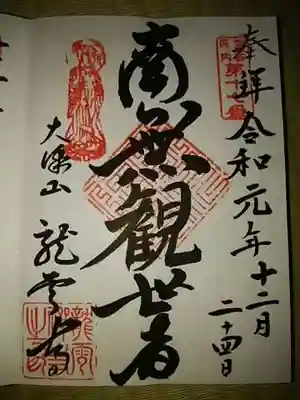 奉拝 令和元年十二月
二十四日
第十七番
南無観世音
大澤山 龍雲寺